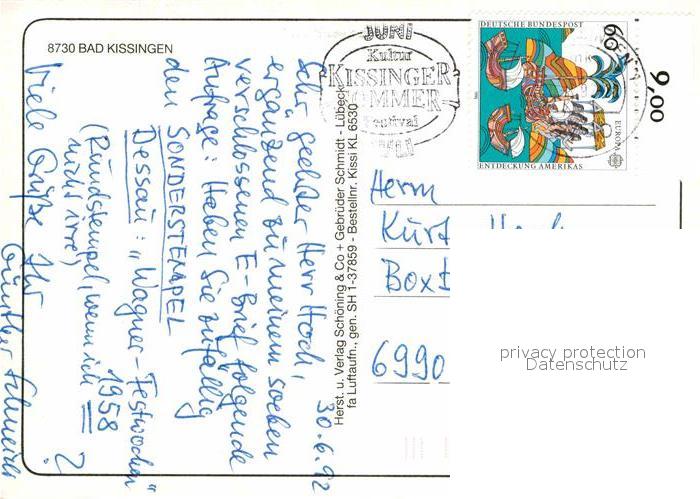 8730 BAD KISSINGEN
30.6.92
Sehr geehrter Herr Hoch,
ergänzend zu meinem soeben
verschlossenen E-Brief folgende
Anfrage: Haben Sie zufällig
den SONDERSTEMPEL
Dessau: „Wagner-Festwochen"
1958
(Rundstempel, wenn ich
nicht irre)
?
Viele Grüße Ihr
Günther
Herst. u. Verlag Schöning & Co + Gebrüder Schmidt - Lübeck
fa Luftaufn., gen. SH 1-37859 - Bestellnr. Kissi KL 6530
JUNI
Kultur
KISSINGER
SOMMER
Festival
JULI
DEUTSCHE BUNDESPOST
60
EUROPA
ENTDECKUNG AMERIKAS
9,00
Herrn
Kurt
Boxt
6990
privacy protection
Datenschutz